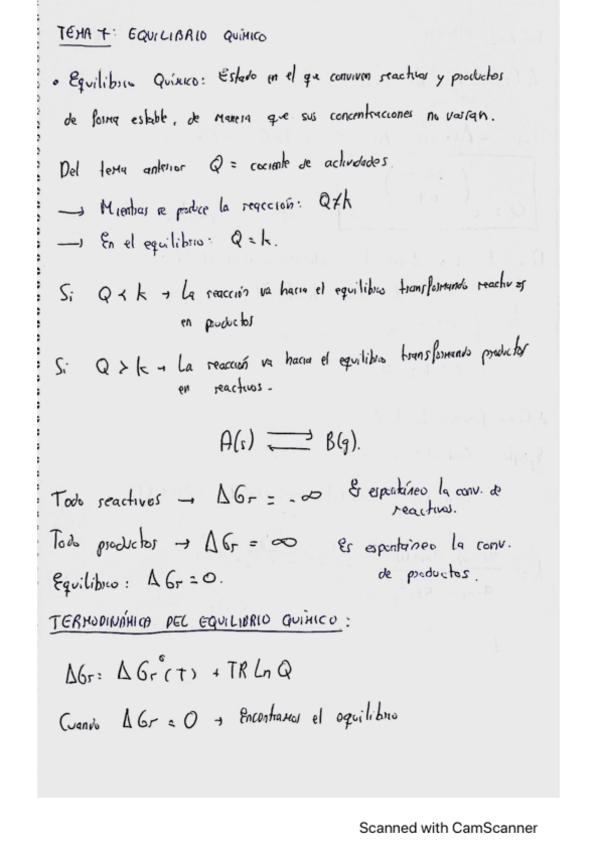 TEMA 7: EQUILIBRIO QUÍMICO
• Equilibrio Químico: Estado en el que conviven reactivos y productos
de forma estable, de manera que sus concentraciones no varían.
Del tema anterior Q = cociente de actividades.
→ Mientras se produce la reacción: Q≠k
→ En el equilibrio: Q = k.
Si Q < k → La reacción va hacia el equilibrio transformando reactivos
en productos
Si Q > k → La reacción va hacia el equilibrio transformando productos
en reactivos.
A(s) ⇌ B(g).
Todo reactivos → ΔGr = -∞ Es espontáneo la conv. de
reactivos.
Todo productos → ΔGr = ∞ Es espontáneo la conv.
de productos.
Equilibrio: ΔGr = 0.
TERMODINÁMICA DEL EQUILIBRIO QUÍMICO:
ΔGr = ΔGr°(T) + TR Ln Q
Cuando ΔGr = 0 → Encontramos el equilibrio
Scanned with CamScanner